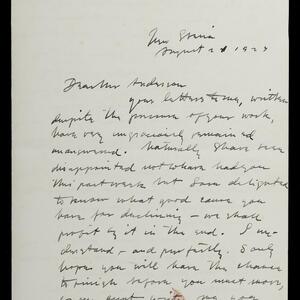 August 21 1923
Dear Mr Anderson
your letters to me, written
despite the pressure of your work,
have very ungraciously remained
unanswered. Naturally I have been
disappointed not to have had you
this past week but I am delighted
to know what good cause you
have for declining – we shall
profit by it in the end. I un-
derstand – and perfectly. I only
hope you will have the chance
to finish before you must move,